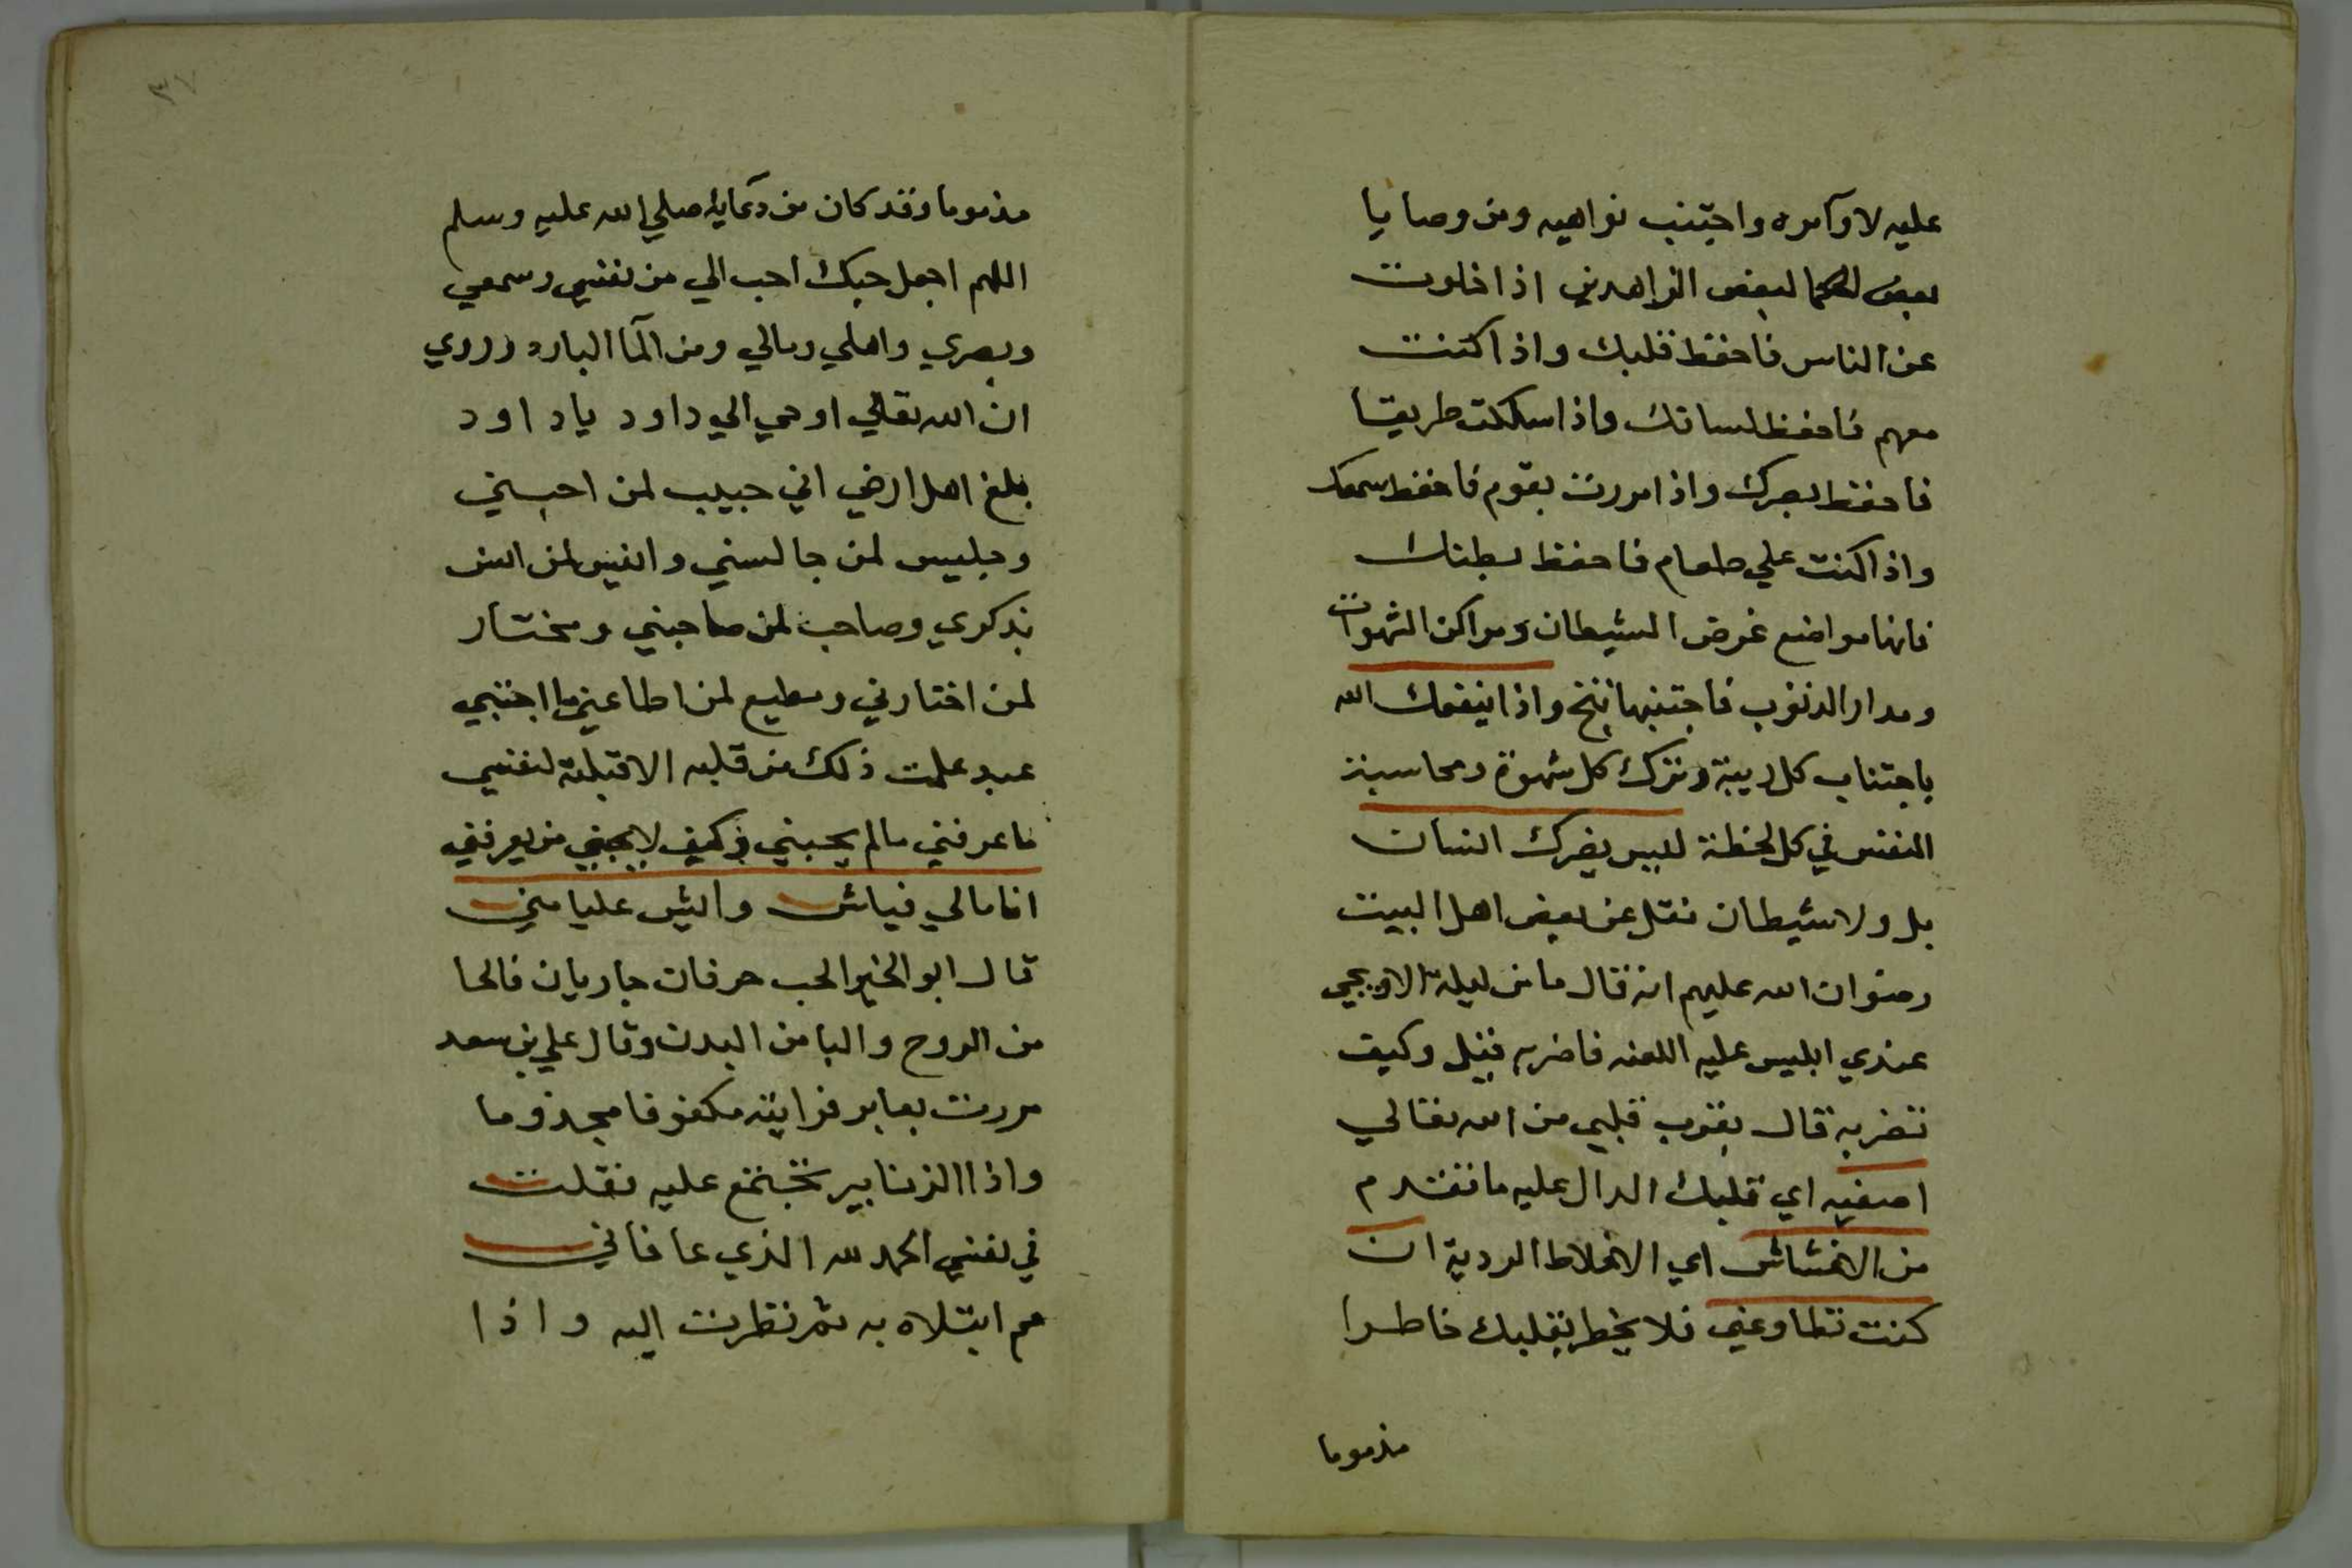 عليه لاوآمره واجتنب نواهيه ومن وصايا
بعض الحكما لبعض الزاهدين اذا خلوت
عن الناس فاحفظ قلبك واذا كنت
معهم فاحفظ لسانك واذا سلكت طريقا
فاحفظ بصرك واذا مررت بقوم فاحفظ سمعك
واذا كنت علي طعام فاحفظ بطنك
فانها مواضع غرض الشيطان ومراكن الشهوات
ومدار الذنوب فاجتنبها تنج واذا ينفعك الله
باجتناب كل ريبة وترك كل شهوة ومحاسبة
النفس في كل لحظة لييس يضرك انسان
بل ولا شيطان نقل عن بعض اهل البيت
رضوان الله عليهم انه قال ما من ليلة الا ويجي
عندي ابليس عليه اللعنه فاضربه فقيل وكيف
تضربه قال بقرب قلبي من الله تعالي
اصفيه اي قلبك الدال عليه ما تقدم
من الاخشاش اي الاخلاط الردية ان
كنت تطاوعني فلا يخطر بقلبك خاطرا
مذموما
٣٧
مذموما وقد كان من دعايه صلي الله عليه وسلم
اللهم اجعل حبك احب الي من نفسي وسمعي
وبصري واهلي ومالي ومن المآ البارد وروي
ان الله تعالي اوحي الي داود ياداود
بلغ اهل ارضي اني حبيب لمن احبني
وجليس لمن جالسني وانيس لمن انس
بذكري وصاحب لمن صاحبني ومختار
لمن اختارني ومطيع لمن اطاعني ما احبني
عبد علمت ذلك من قلبه الا قبلته لنفسي
ما عرفني ما لم يحبني وكيف لا يحبني من يعرفني
انا مالي فياش واليش عليا مني
قال ابو الخير الحب حرفان جاريان فالحا
من الروح والبا من البدن وقال علي بن سعد
مررت بعابر فرايته مكفوفا مجذوما
واذا الزنابير تجتمع عليه فقلت
في نفسي الحمد لله الذي عافاني
مم ابتلاه به ثم نظرت اليه واذا